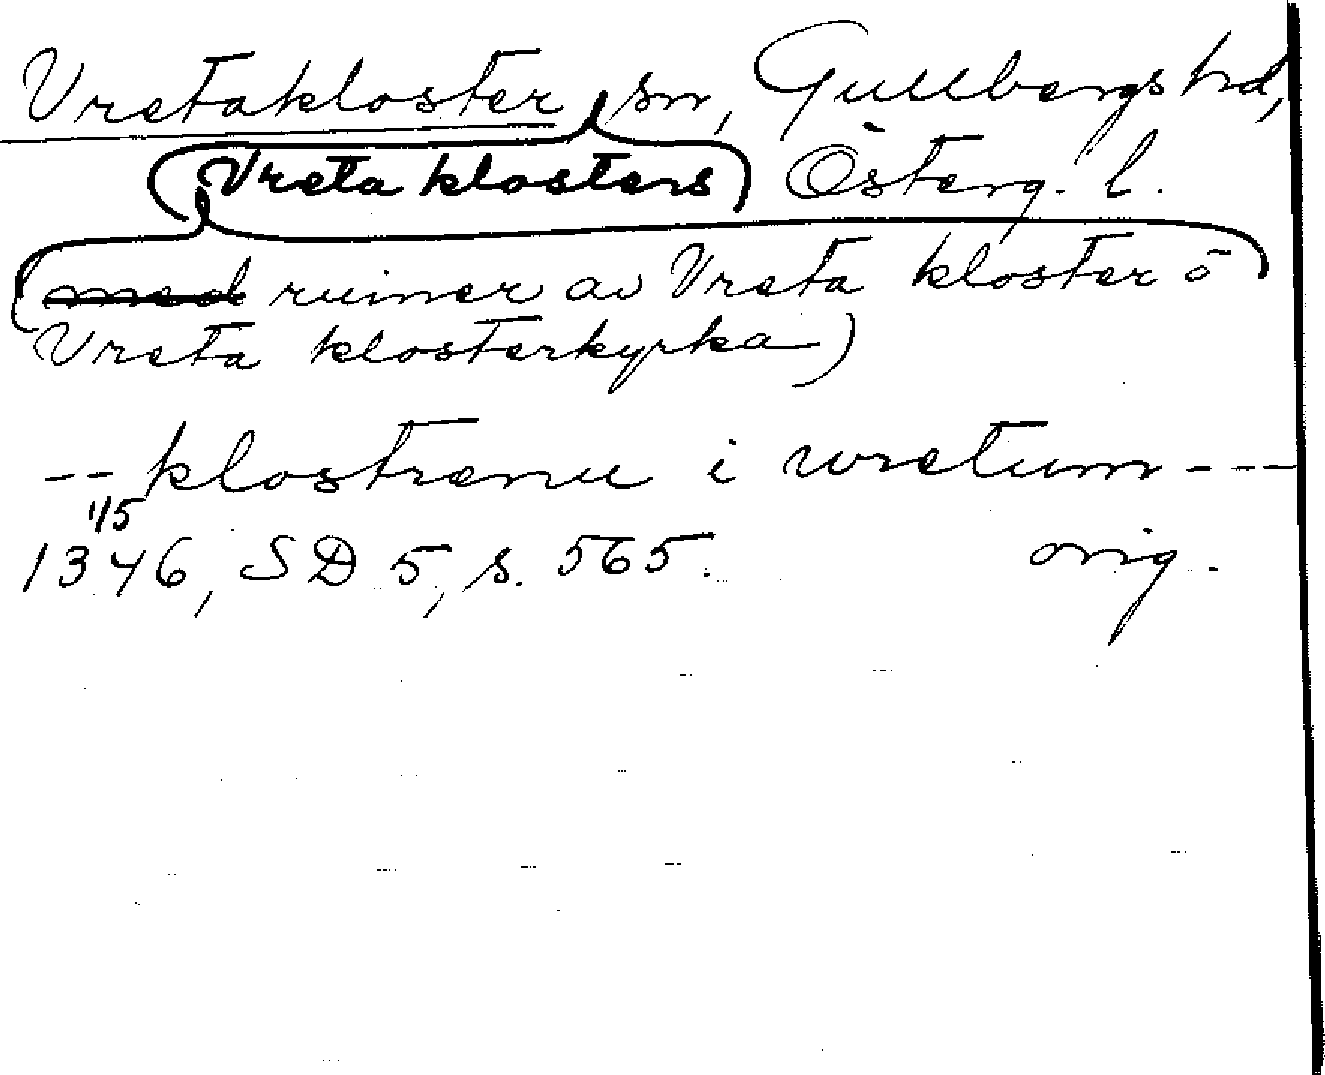 Vretakloster sn, Gullbergs hd,
(Vreta klosters) Österg. l.
(med ruiner av Vreta kloster o
Vreta klosterkyrka)
-- klostrenu i wretum ---
1/5
1346, SD 5, s. 565. orig.